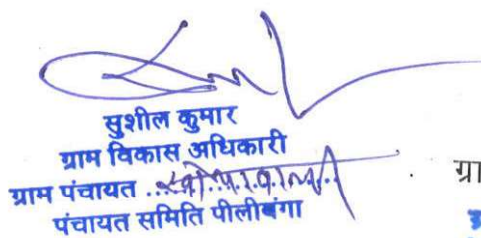 सुशील कुमार
ग्राम विकास अधिकारी
ग्राम पंचायत ..
पंचायत समिति पीलीबंगा
ग्रा